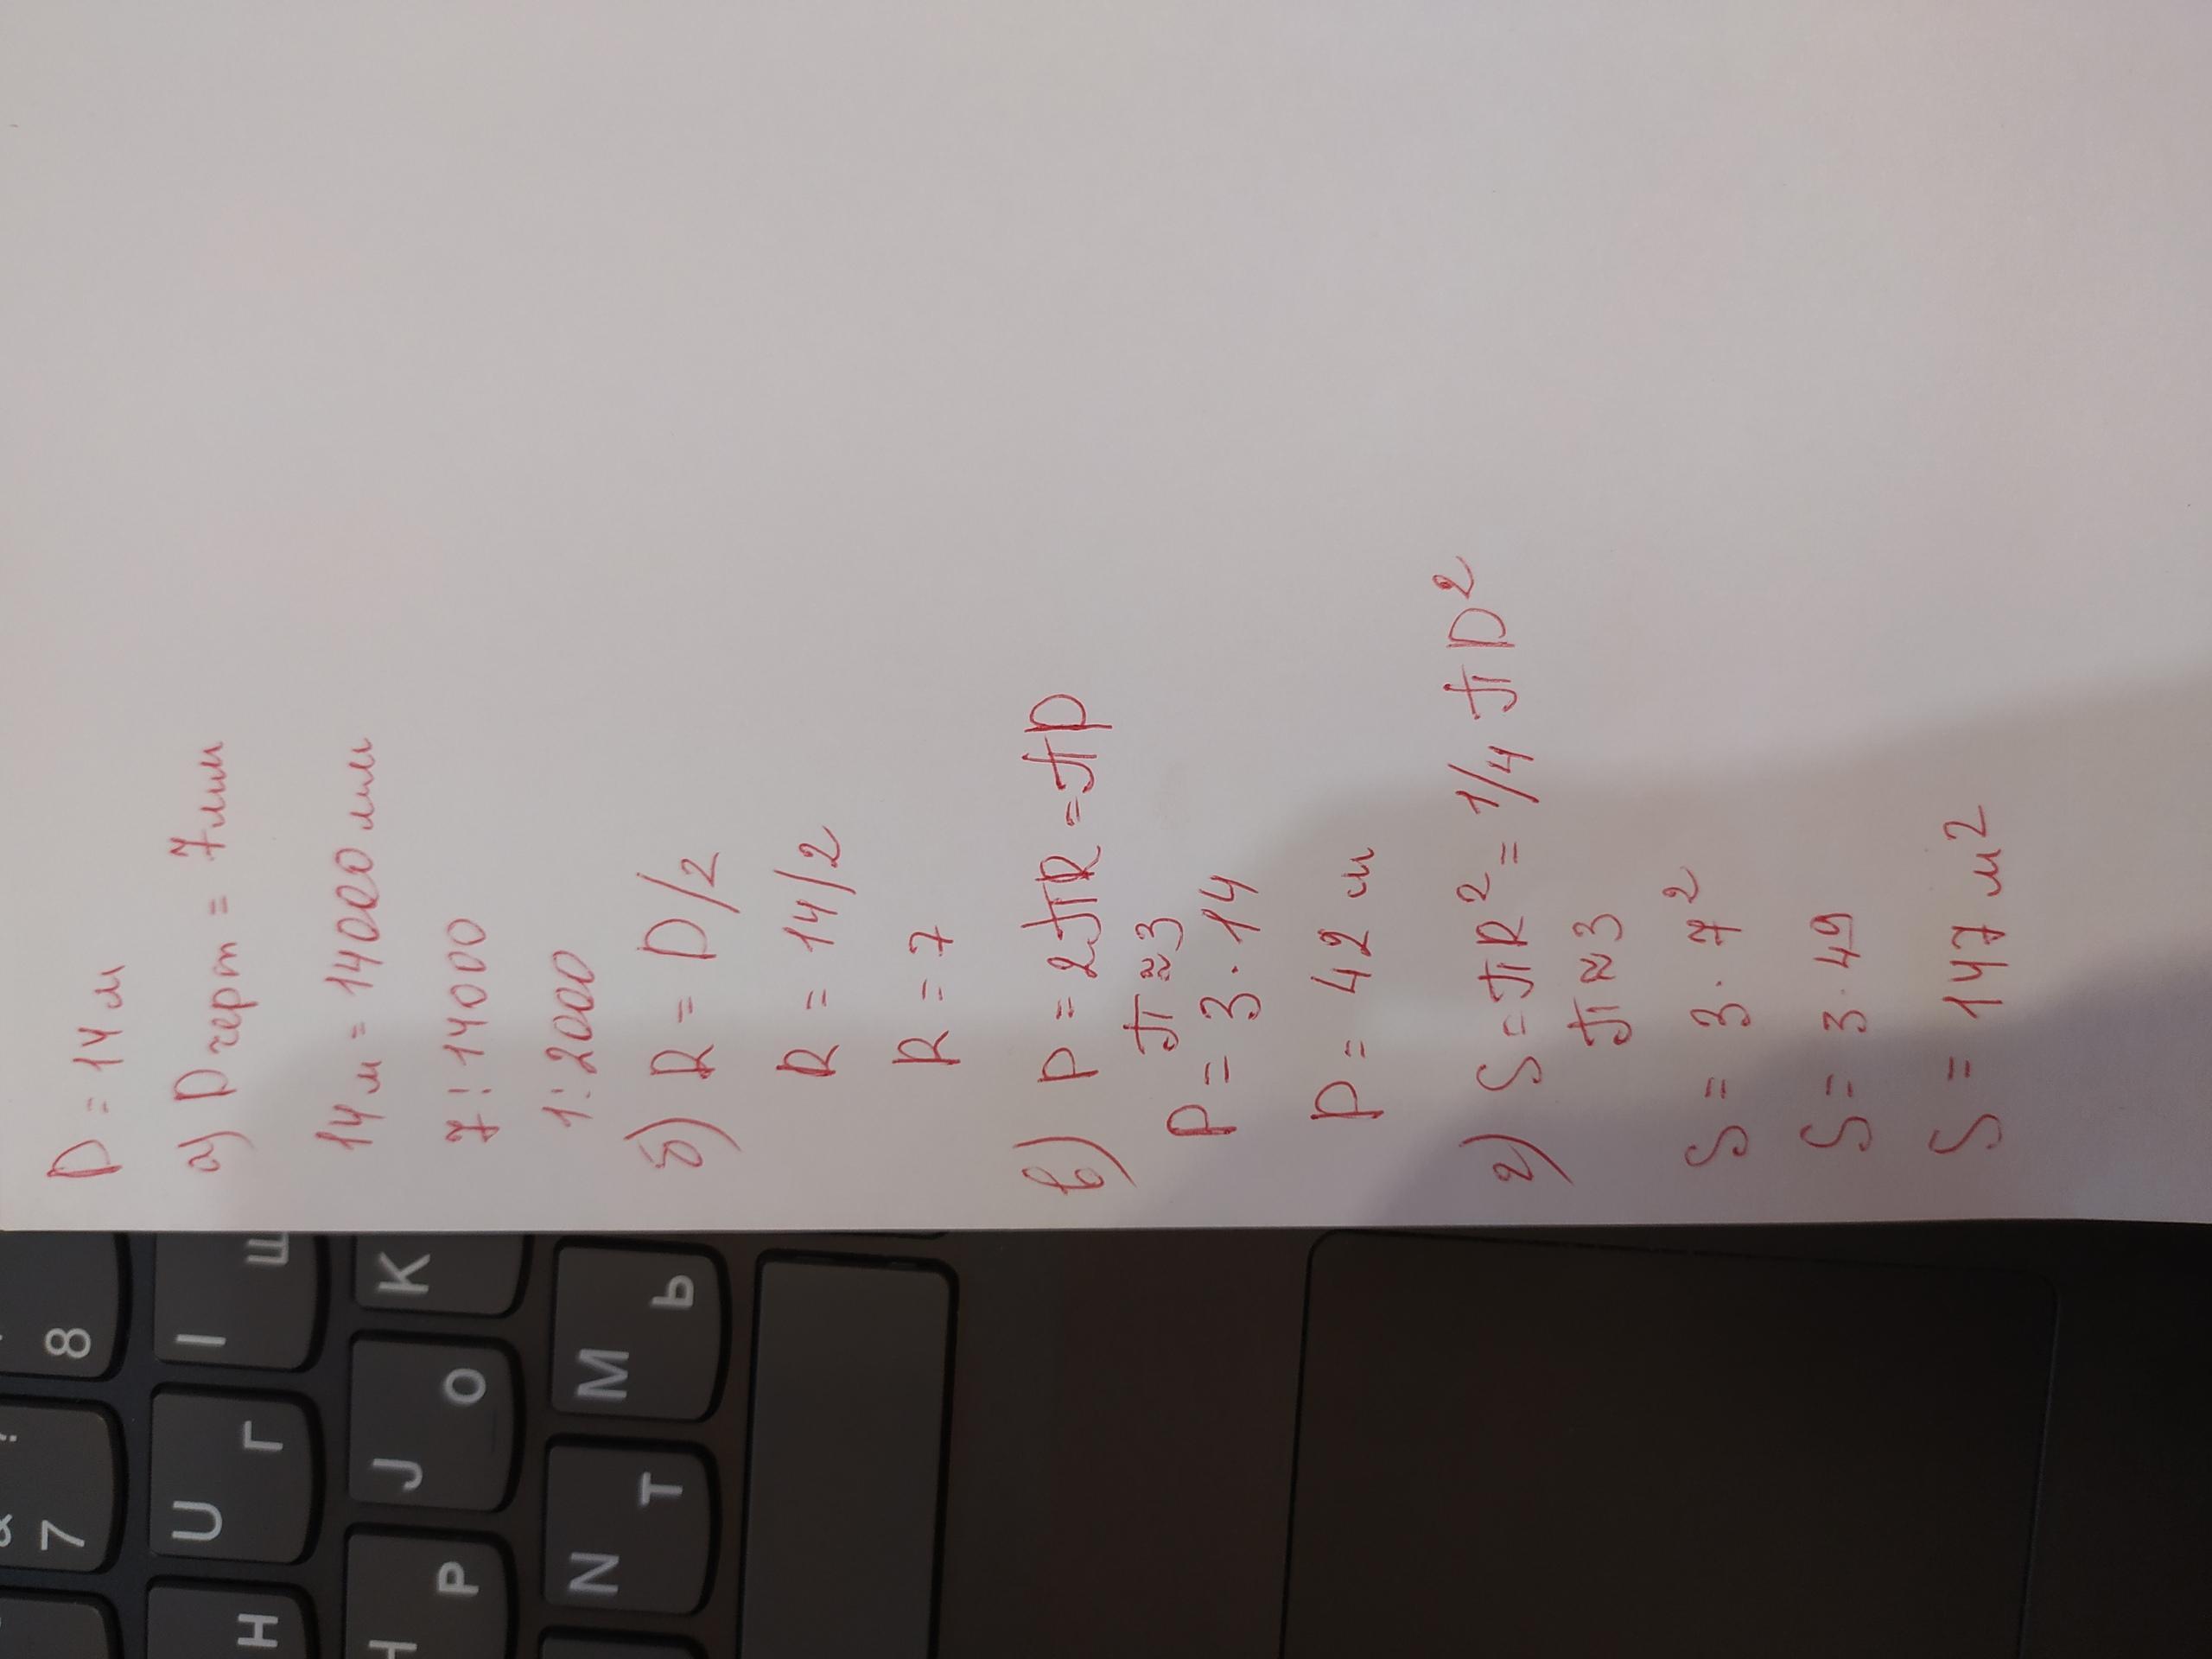 D = 14 м
а) D черт = 7 мм
14 м = 14000 мм
7 : 14000
1 : 2000
б) R = D/2
R = 14/2
R = 7
в) P = 2πR = πD
π ≈ 3
P = 3 · 14
P = 42 м
г) S = πR² = 1/4 πD²
π ≈ 3
S = 3 · 7²
S = 3 · 49
S = 147 м²
8
7
I Ш
U Г
H
K
J О
Р
M Ь
N Т